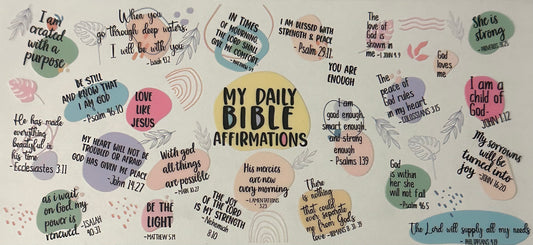 I am
created
with a
purpose
When you
go through deep waters
I will be with you
- Isaiah 43:2
IN TIMES
OF MOURNING
THE LORD SHALL
GIVE ME COMFORT
I AM BLESSED WITH
STRENGTH & PEACE
- Psalm 29:11
The
love of
God is
shown in
me
- 1 JOHN 4:9
God
loves
me
She is
strong
- PROVERBS 31:25
BE STILL
AND KNOW THAT
I AM GOD
- Psalm 46:10
LOVE
LIKE
JESUS
MY DAILY
BIBLE
AFFIRMATIONS
YOU ARE
ENOUGH
I am
good enough,
smart enough,
and strong
enough
- Psalms 139
The
peace of
God rules
in my heart
- COLOSSIANS 3:15
I am a
child of
God
- JOHN 1:12
He has made
everything
beautiful in
his time
- Ecclesiastes 3:11
MY HEART WILL NOT BE
TROUBLED OR AFRAID
GOD HAS GIVEN ME PEACE
- John 14:27
With god
all things
are possible
- MARK 10:27
His mercies
are new
every morning
- LAMENTATIONS
3:23
God
is within
her she
will not fall
- Psalm 46:5
My sorrows
will be
turned into
joy
- JOHN 16:20
as i wait
on God my
power is
renewed
- ISAIAH
40:31
BE THE
LIGHT
- MATTHEW 5:14
THE JOY
OF THE LORD
IS MY STRENGTH
- Nehemiah
8:10
There
is nothing
that could
ever separate
me from God's
love
- ROMANS 8:38, 39
The Lord will supply all my needs
- PHILIPPIANS 4:19